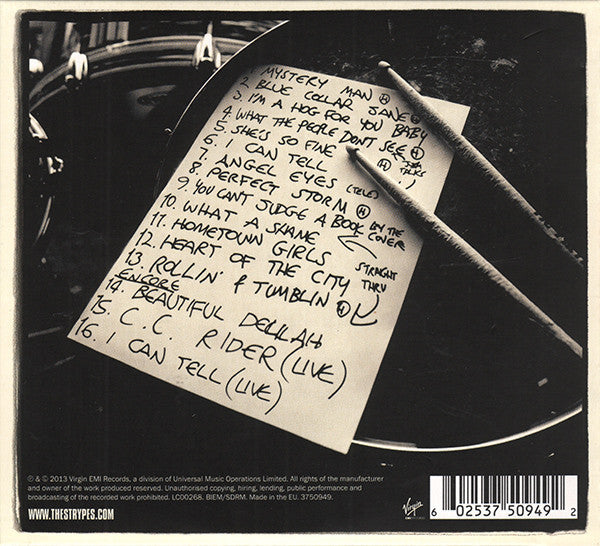 MYSTERY MAN Ⓗ
2. BLUE COLLAR JANE Ⓗ
3. I'M A HOG FOR YOU BABY
4. WHAT THE PEOPLE DON'T SEE Ⓗ
5. SHE'S SO FINE Ⓗ
TALKS
6. I CAN TELL
7. ANGEL EYES (TELE)
8. PERFECT STORM Ⓗ
9. YOU CAN'T JUDGE A BOOK BY THE COVER
10. WHAT A SHAME
11. HOMETOWN GIRLS
STRAIGHT THRU
12. HEART OF THE CITY
13. ROLLIN' & TUMBLIN Ⓗ
ENCORE
14. BEAUTIFUL DELILAH
15. C.C. RIDER (LIVE)
16. I CAN TELL (LIVE)
℗ & © 2013 Virgin EMI Records, a division of Universal Music Operations Limited. All rights of the manufacturer
and owner of the work produced reserved. Unauthorised copying, hiring, lending, public performance and
broadcasting of the recorded work prohibited. LC00268. BIEM/SDRM. Made in the EU. 3750949.
WWW.THESTRYPES.COM
Virgin
6 02537 50949 2